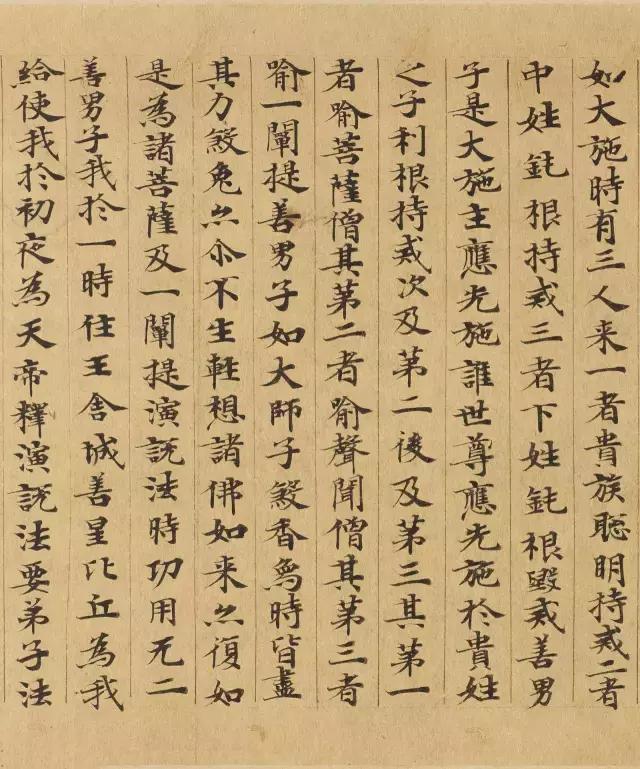 如大施時有三人来一者貴族聡明持戒二者
中姓鈍根持戒三者下姓鈍根毀戒善男
子是大施主應先施誰世尊應先施於貴姓
之子利根持戒次及第二後及第三其第一
者喻菩薩僧其第二者喻聲聞僧其第三者
喻一闡提善男子如大師子煞香烏時皆盡
其力煞兔亦尒不生輕想諸佛如来亦復如
是為諸菩薩及一闡提演説法時功用无二
善男子我於一時住王舍城善星比丘為我
給使我於初夜為天帝釋演説法要弟子法